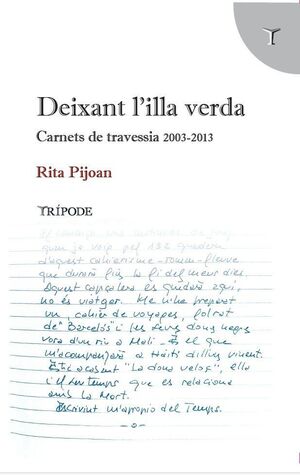 T
Deixant l'illa verda
Carnets de travessia 2003-2013
Rita Pijoan
TRÍPODE
quan ja vaig pel 152 quadern
d'aquest cahierisme-roman-fleuve
que durarà fins la fi del meus dies.
Aquest capçalera es quedarà aquí,
no és viatger. Me n'he preparat
un cahier de voyages, folrat
de "Barceló" i les seves dones negres
vora d'un riu a Mali. És el que
m'acompanyarà a Haití dilluns vinent.
Estic acosant "La dona veloç", ella
i el seu temps que es relaciona
amb la Mort.
Escrivint m'apropio del Temps.